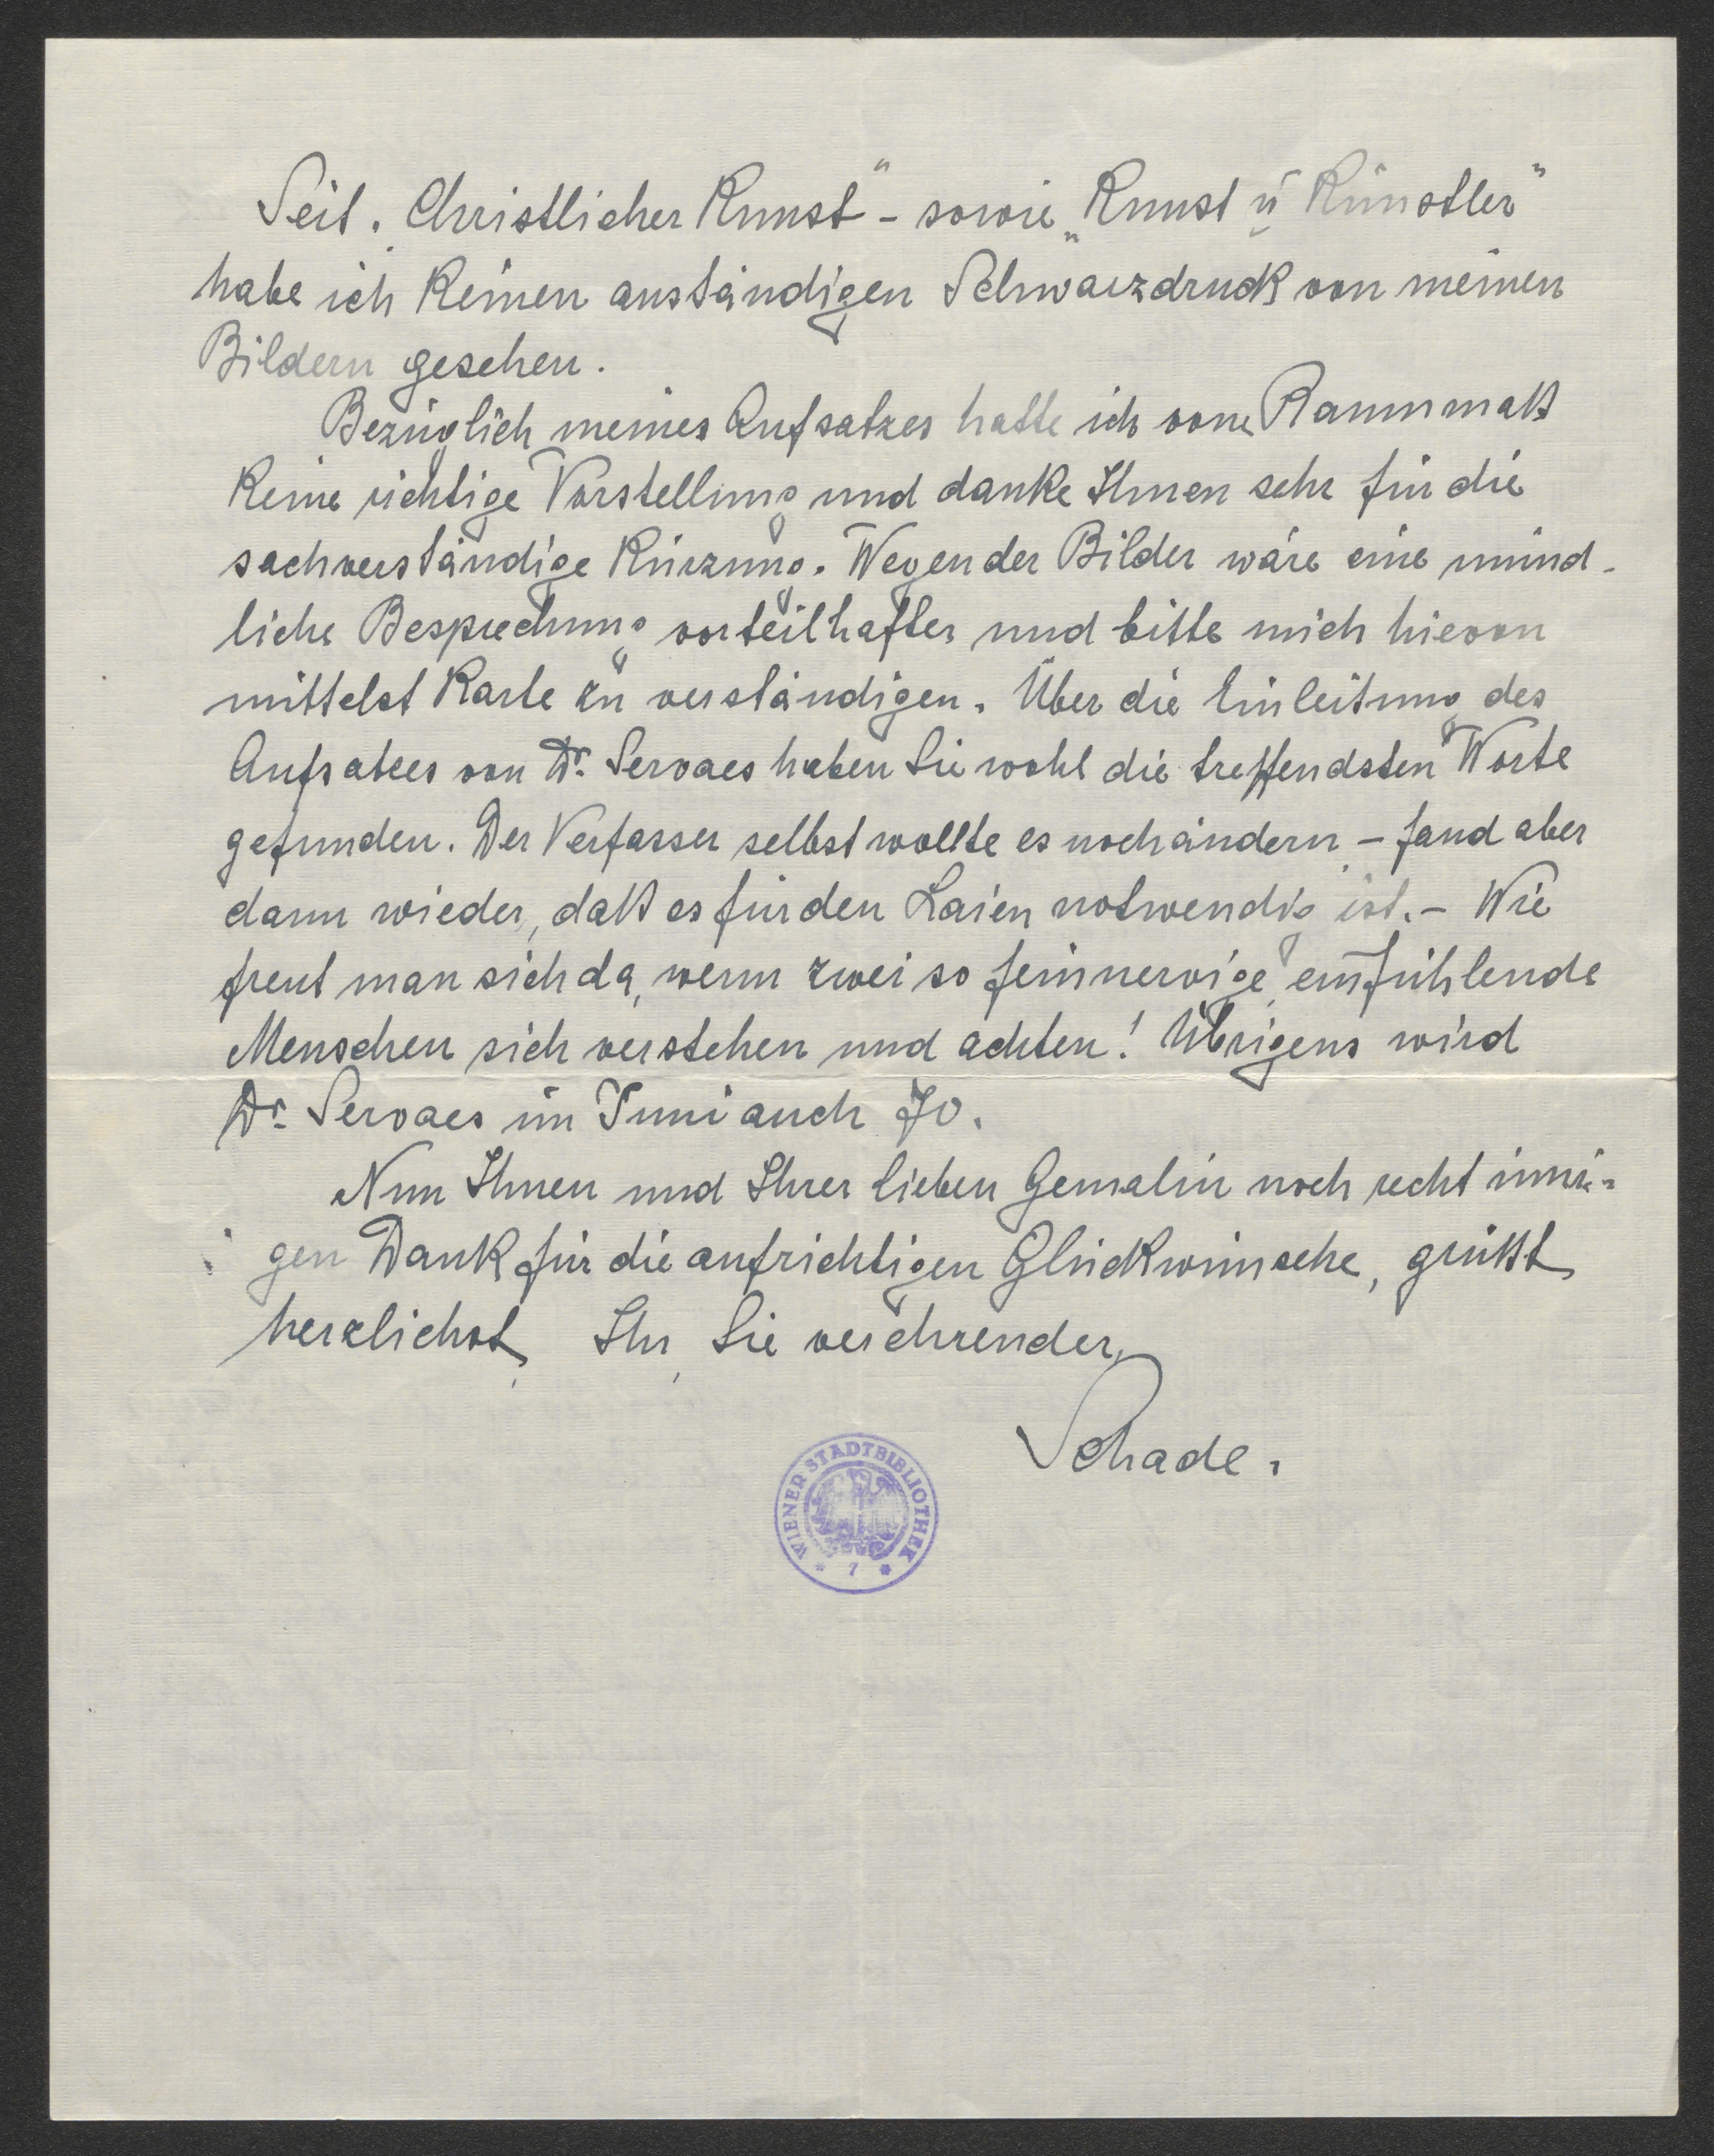 Seit „Christlicher Kunst" - sowie „Kunst u Künstler"
habe ich keinen anständigen Schwarzdruck von meinen
Bildern gesehen.
Bezüglich meines Aufsatzes hatte ich vom Raummaß
keine richtige Vorstellung und danke Ihnen sehr für die
sachverständige Kürzung. Wegen der Bilder wäre eine münd-
liche Besprechung vorteilhafter und bitte mich hievon
mittelst Karte zu verständigen. Über die Einleitung des
Aufsatzes von Dr. Servaes haben Sie wohl die treffendsten Worte
gefunden. Der Verfasser selbst wollte es noch ändern - fand aber
dann wieder, daß es für den Laien notwendig ist. - Wie
freut man sich da, wenn zwei so feinnervige, einfühlende
Menschen sich verstehen und achten! Übrigens wird
Dr. Servaes im Juni auch 70.
Nun Ihnen und Ihrer lieben Gemalin noch recht inni-
gen Dank für die aufrichtigen Glückwünsche, grüßt
herzlichst, Ihr, Sie verehrender,
Schade.
WIENER STADTBIBLIOTHEK
* 7 *